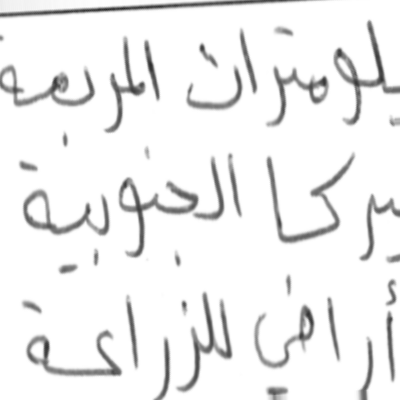 يلومترات المربعة
يركا الجنوبية
أراضي للزراعة